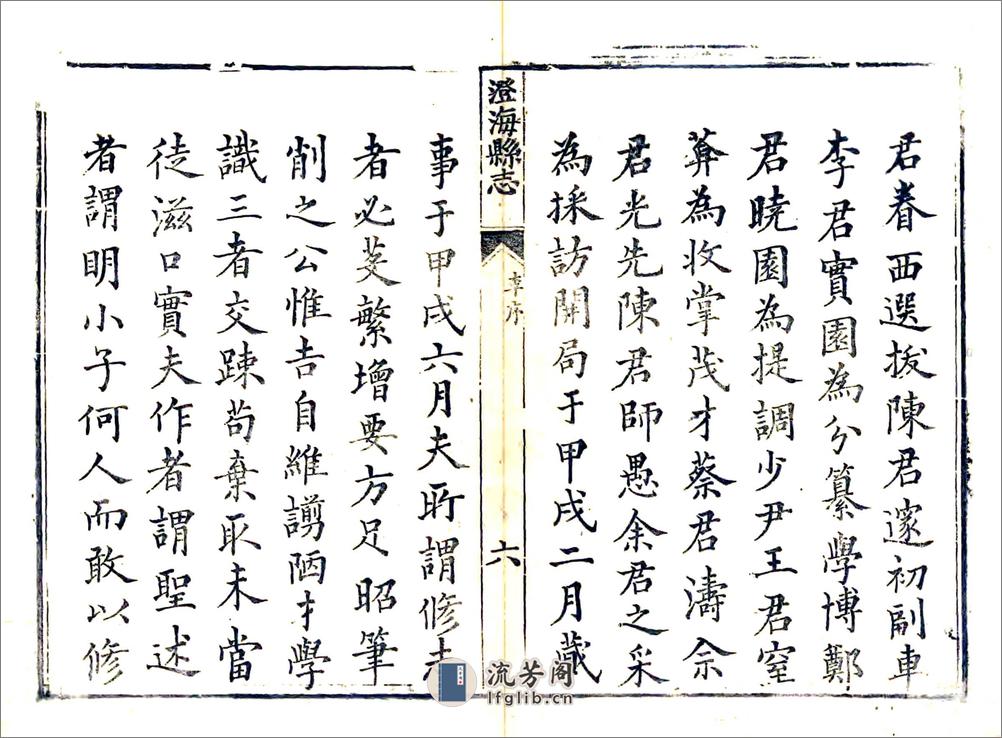 君眷西選拔陳君邃初副車
李君實園為分纂學博鄭
君曉園為提調少尹王君窒
葊為收掌茂才蔡君濤佘
君光先陳君師愚余君之采
為採訪開局于甲戌二月蕆
澄海縣志
序
六
事于甲戌六月夫所謂修志
者必芟繁增要方足昭筆
削之公惟吉自維謭陋才學
識三者交踈茍棄取未當
徒滋口實夫作者謂聖述
者謂明小子何人而敢以修
流芳阁
lfglib.cn